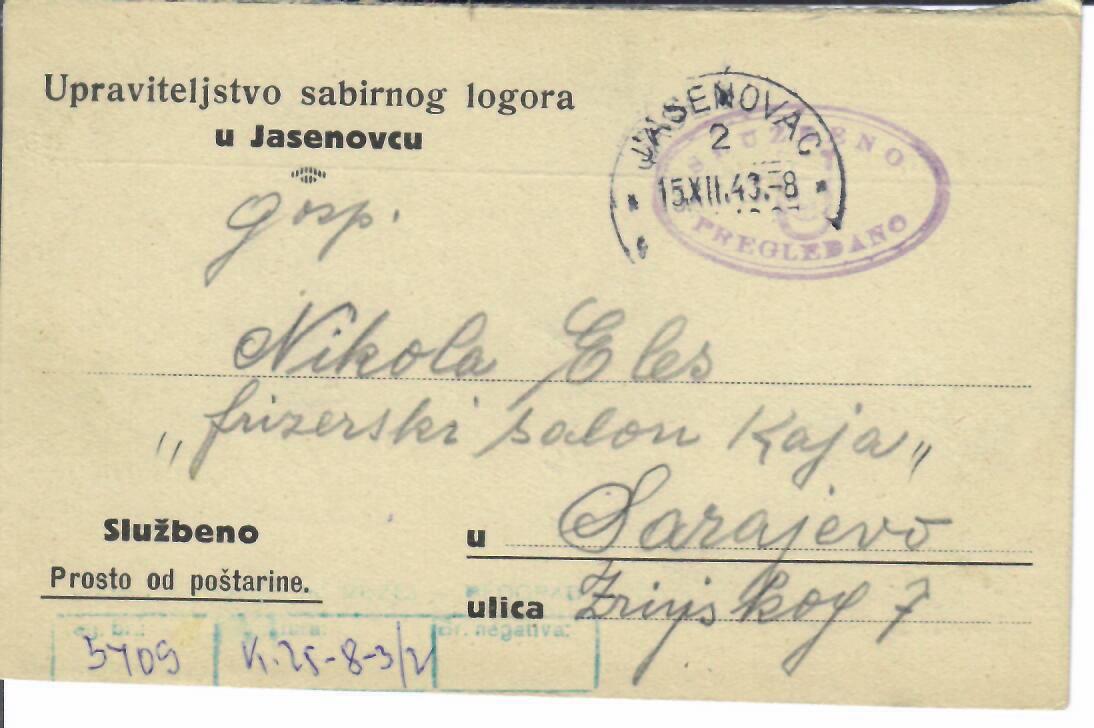 Upraviteljstvo sabirnog logora
u Jasenovcu
JASENOVAC
2
15.XII.43.-8
SLUŽBENO
PREGLEDANO
Gosp.
Nikola Eles
„frizerski salon Kaja„
Službeno
Prosto od poštarine.
u Sarajevo
ulica Zrinjskog 7
br. negativa:
5409
K.25-8-3/21